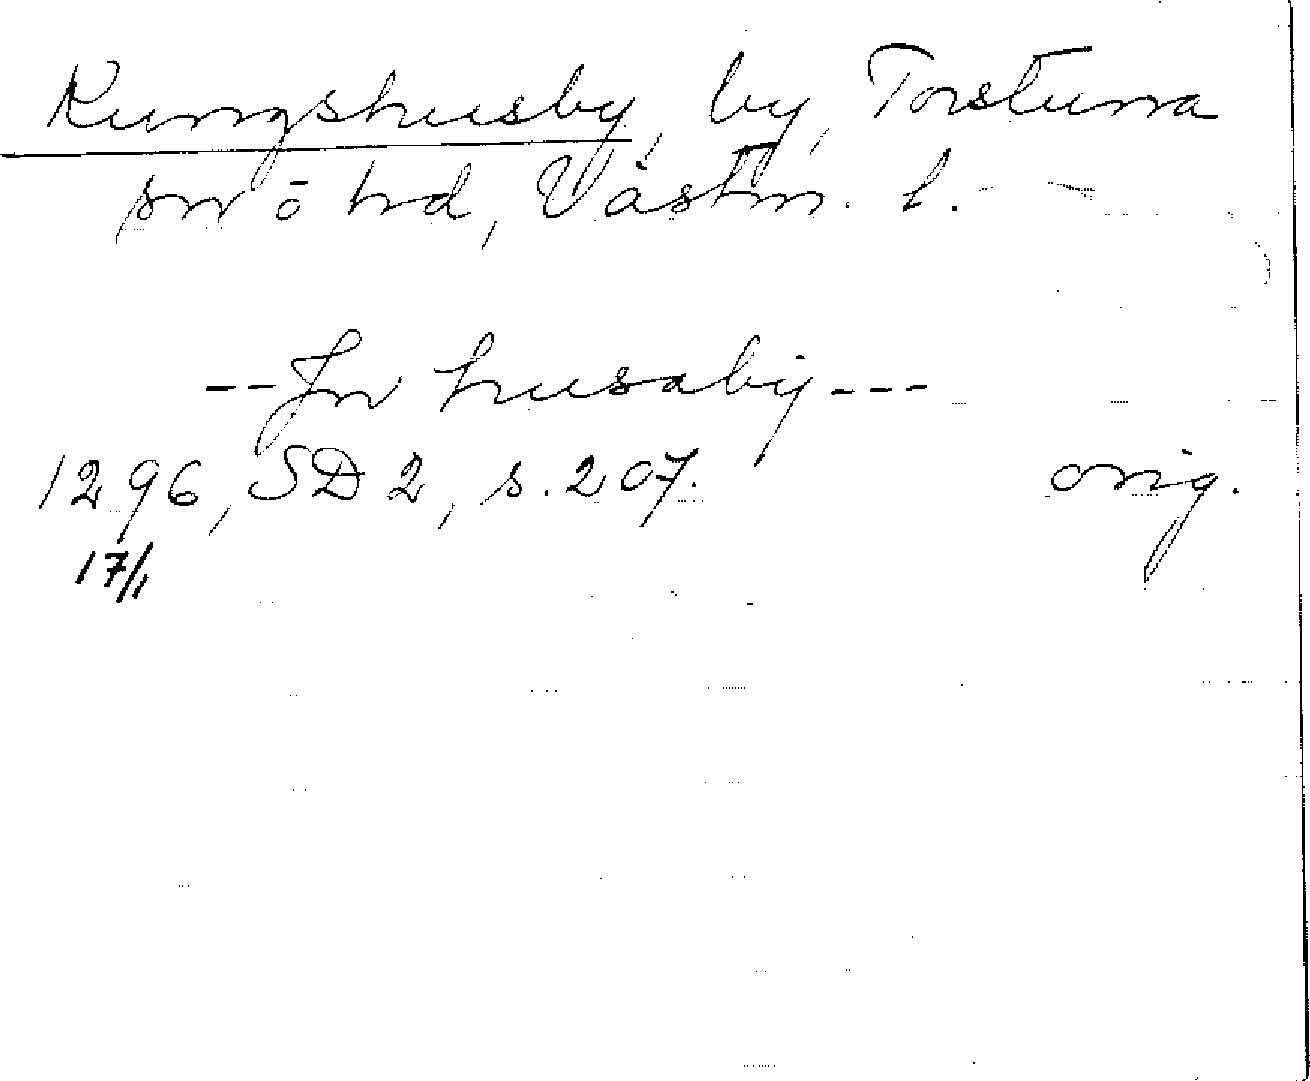 Kungshusby, by, Torstuna
sn o hd, Västm. l.
-- Jn husaby ---
1296, SD 2, s. 207. orig.
17/1